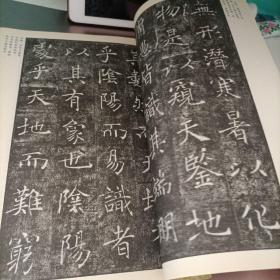 無形潛寒暑以化
物是以窺天鑒地
愚皆識其端明
乎陰陽而易識者
以其有象也陰陽
處乎天地而難窮